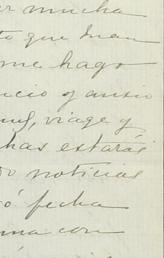 mucha
to que Juan
me hago
ncio y ansio
viage y
has estarás
do noticias
ó fecha
ma con